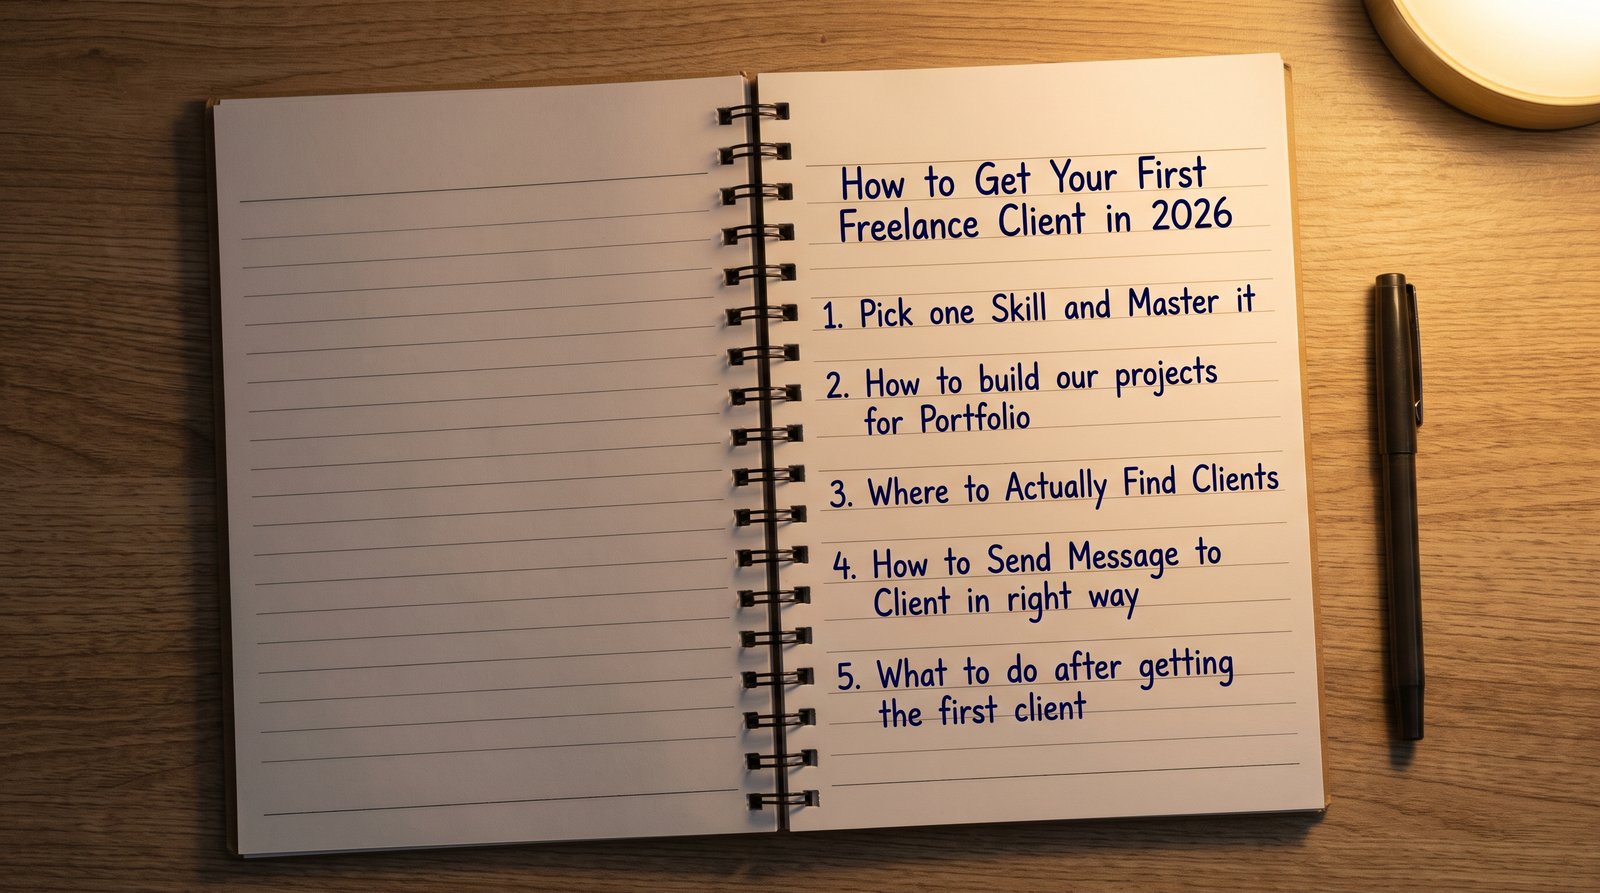 How to Get Your First
Freelance Client in 2026
1. Pick one Skill and Master it
2. How to build our projects
for Portfolio
3. Where to Actually Find Clients
4. How to Send Message to
Client in right way
5. What to do after getting
the first client